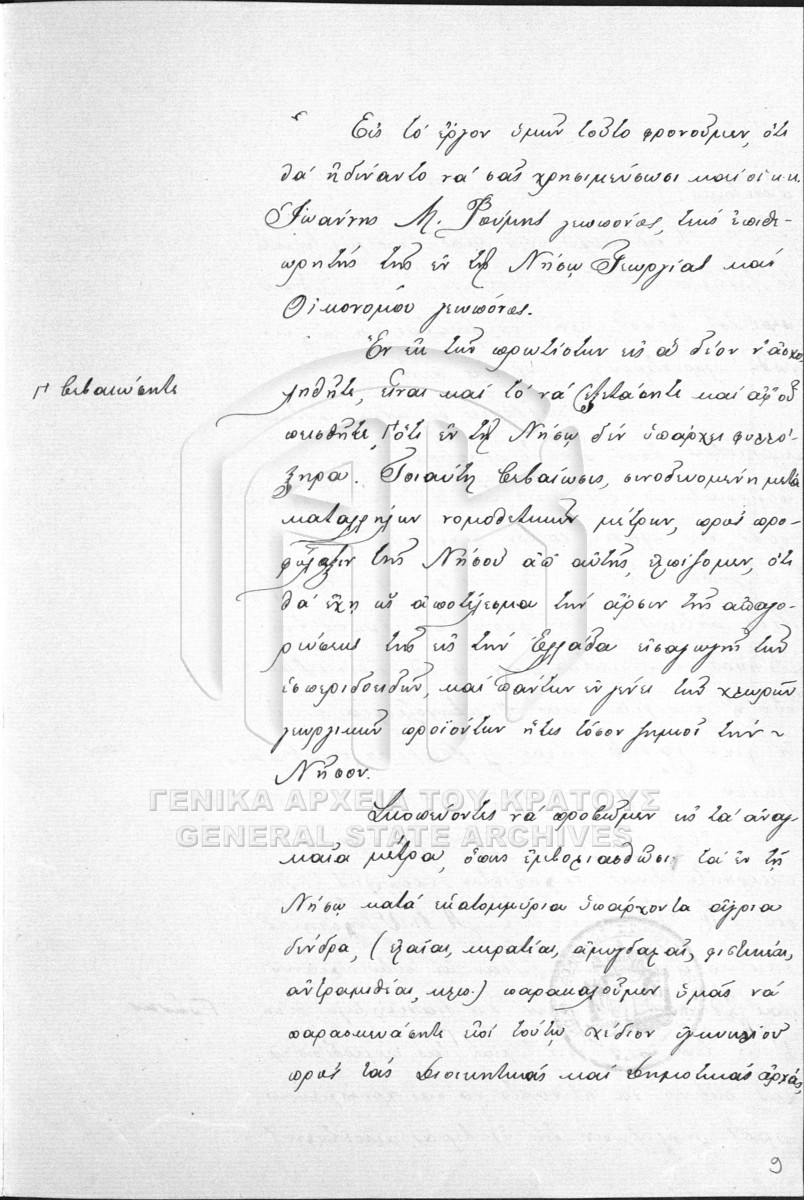 Εἰς τό ἔργον ὑμῶν τοῦτο φρονοῦμεν, ὅτι
θά ἠδύναντο νά σᾶς χρησιμεύσωσι καί οἱ κ.κ.
Ἰωάννης Μ. γεωπόνος, τέως ἐπιθε-
ωρητής τῆς ἐν τῇ Νήσῳ Γεωργίας καί
Οἰκονόμου γεωπόνος.
Ἕν ἐκ τῶν πρωτίστων εἰς ἃ δέον ν' ἀσχο-
ληθῆτε, εἶναι καί τό νά ἐξετάσητε καί ἀφ' οὗ
Γ βεβαιώσητε
πεισθῆτε, Γ ὅτι ἐν τῇ Νήσῳ δέν ὑπάρχει φυλλο-
ξήρα. Τοιαύτη βεβαίωσις, συνοδευομένη μετά
καταλλήλων νομοθετικῶν μέτρων, πρός προ-
φύλαξιν τῆς Νήσου ἀπ' αὐτῆς, ἐλπίζομεν, ὅτι
θά ἔχῃ ὡς ἀποτέλεσμα τήν ἄρσιν τῆς ἀπαγο-
ρεύσεως τῆς εἰς τήν Ἑλλάδα εἰσαγωγῆς τῶν
ἑσπεριδοειδῶν, καί πάντων ἐν γένει τῶν χλωρῶν
γεωργικῶν προϊόντων ἥτις τόσον ζημιοῖ τήν
Νῆσον.
Σκοπεύοντες νά προβῶμεν εἰς τά ἀναγ-
καῖα μέτρα, ὅπως ἐμβολιασθῶσι τά ἐν τῇ
Νήσῳ κατά ἑκατομμύρια ὑπάρχοντα ἄγρια
δένδρα, (ἐλαίας, κερατέας, ἀμυγδαλᾶς, φιστικέας,
ἀντραμιθέας, κλπ.) παρακαλοῦμεν ὑμᾶς νά
παρασκευάσητε ἐπί τούτῳ σχέδιον ἐγκυκλίου
πρός τάς Διοικητικάς καί Δημοτικάς ἀρχάς,
9
ΓΕΝΙΚΑ ΑΡΧΕΙΑ ΤΟΥ ΚΡΑΤΟΥΣ
GENERAL STATE ARCHIVES